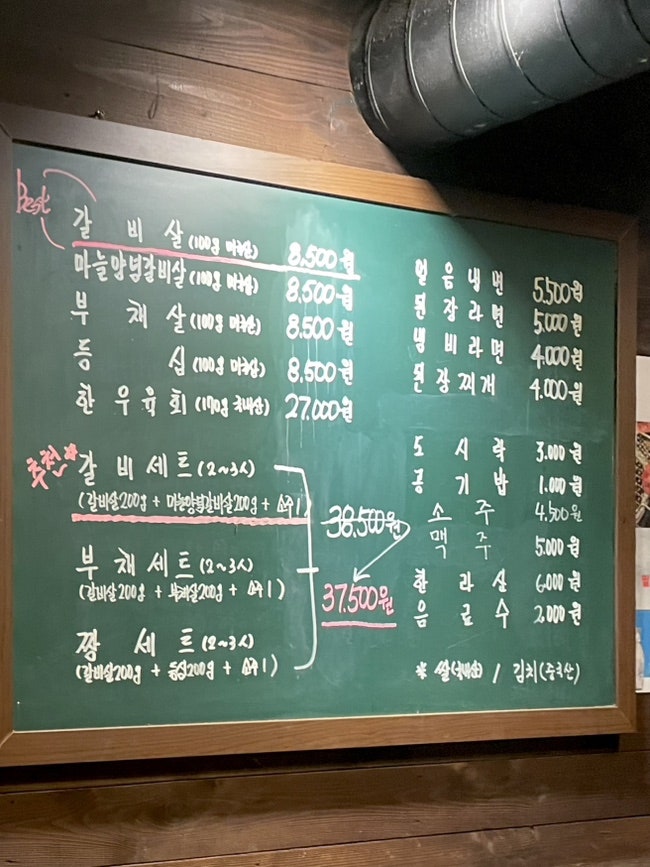 Best
갈비살 (100g 미국산) 8,500원
마늘양념갈비살 (100g 미국산) 8,500원
부채살 (100g 미국산) 8,500원
등심 (100g 미국산) 8,500원
한우육회 (170g 국내산) 27,000원
추천
갈비세트 (2~3人)
(갈비살200g + 마늘양념갈비살200g + 소주1)
부채세트 (2~3人)
(갈비살200g + 부채살200g + 소주1)
짱세트 (2~3人)
(갈비살200g + 등심200g + 소주1)
38,500원
37,500원
얼음냉면 5,500원
된장라면 5,000원
냄비라면 4,000원
된장찌개 4,000원
도시락 3,000원
공기밥 1,000원
소주 4,500원
맥주 5,000원
한라산 6,000원
음료수 2,000원
* 쌀(국내산) / 김치(중국산)